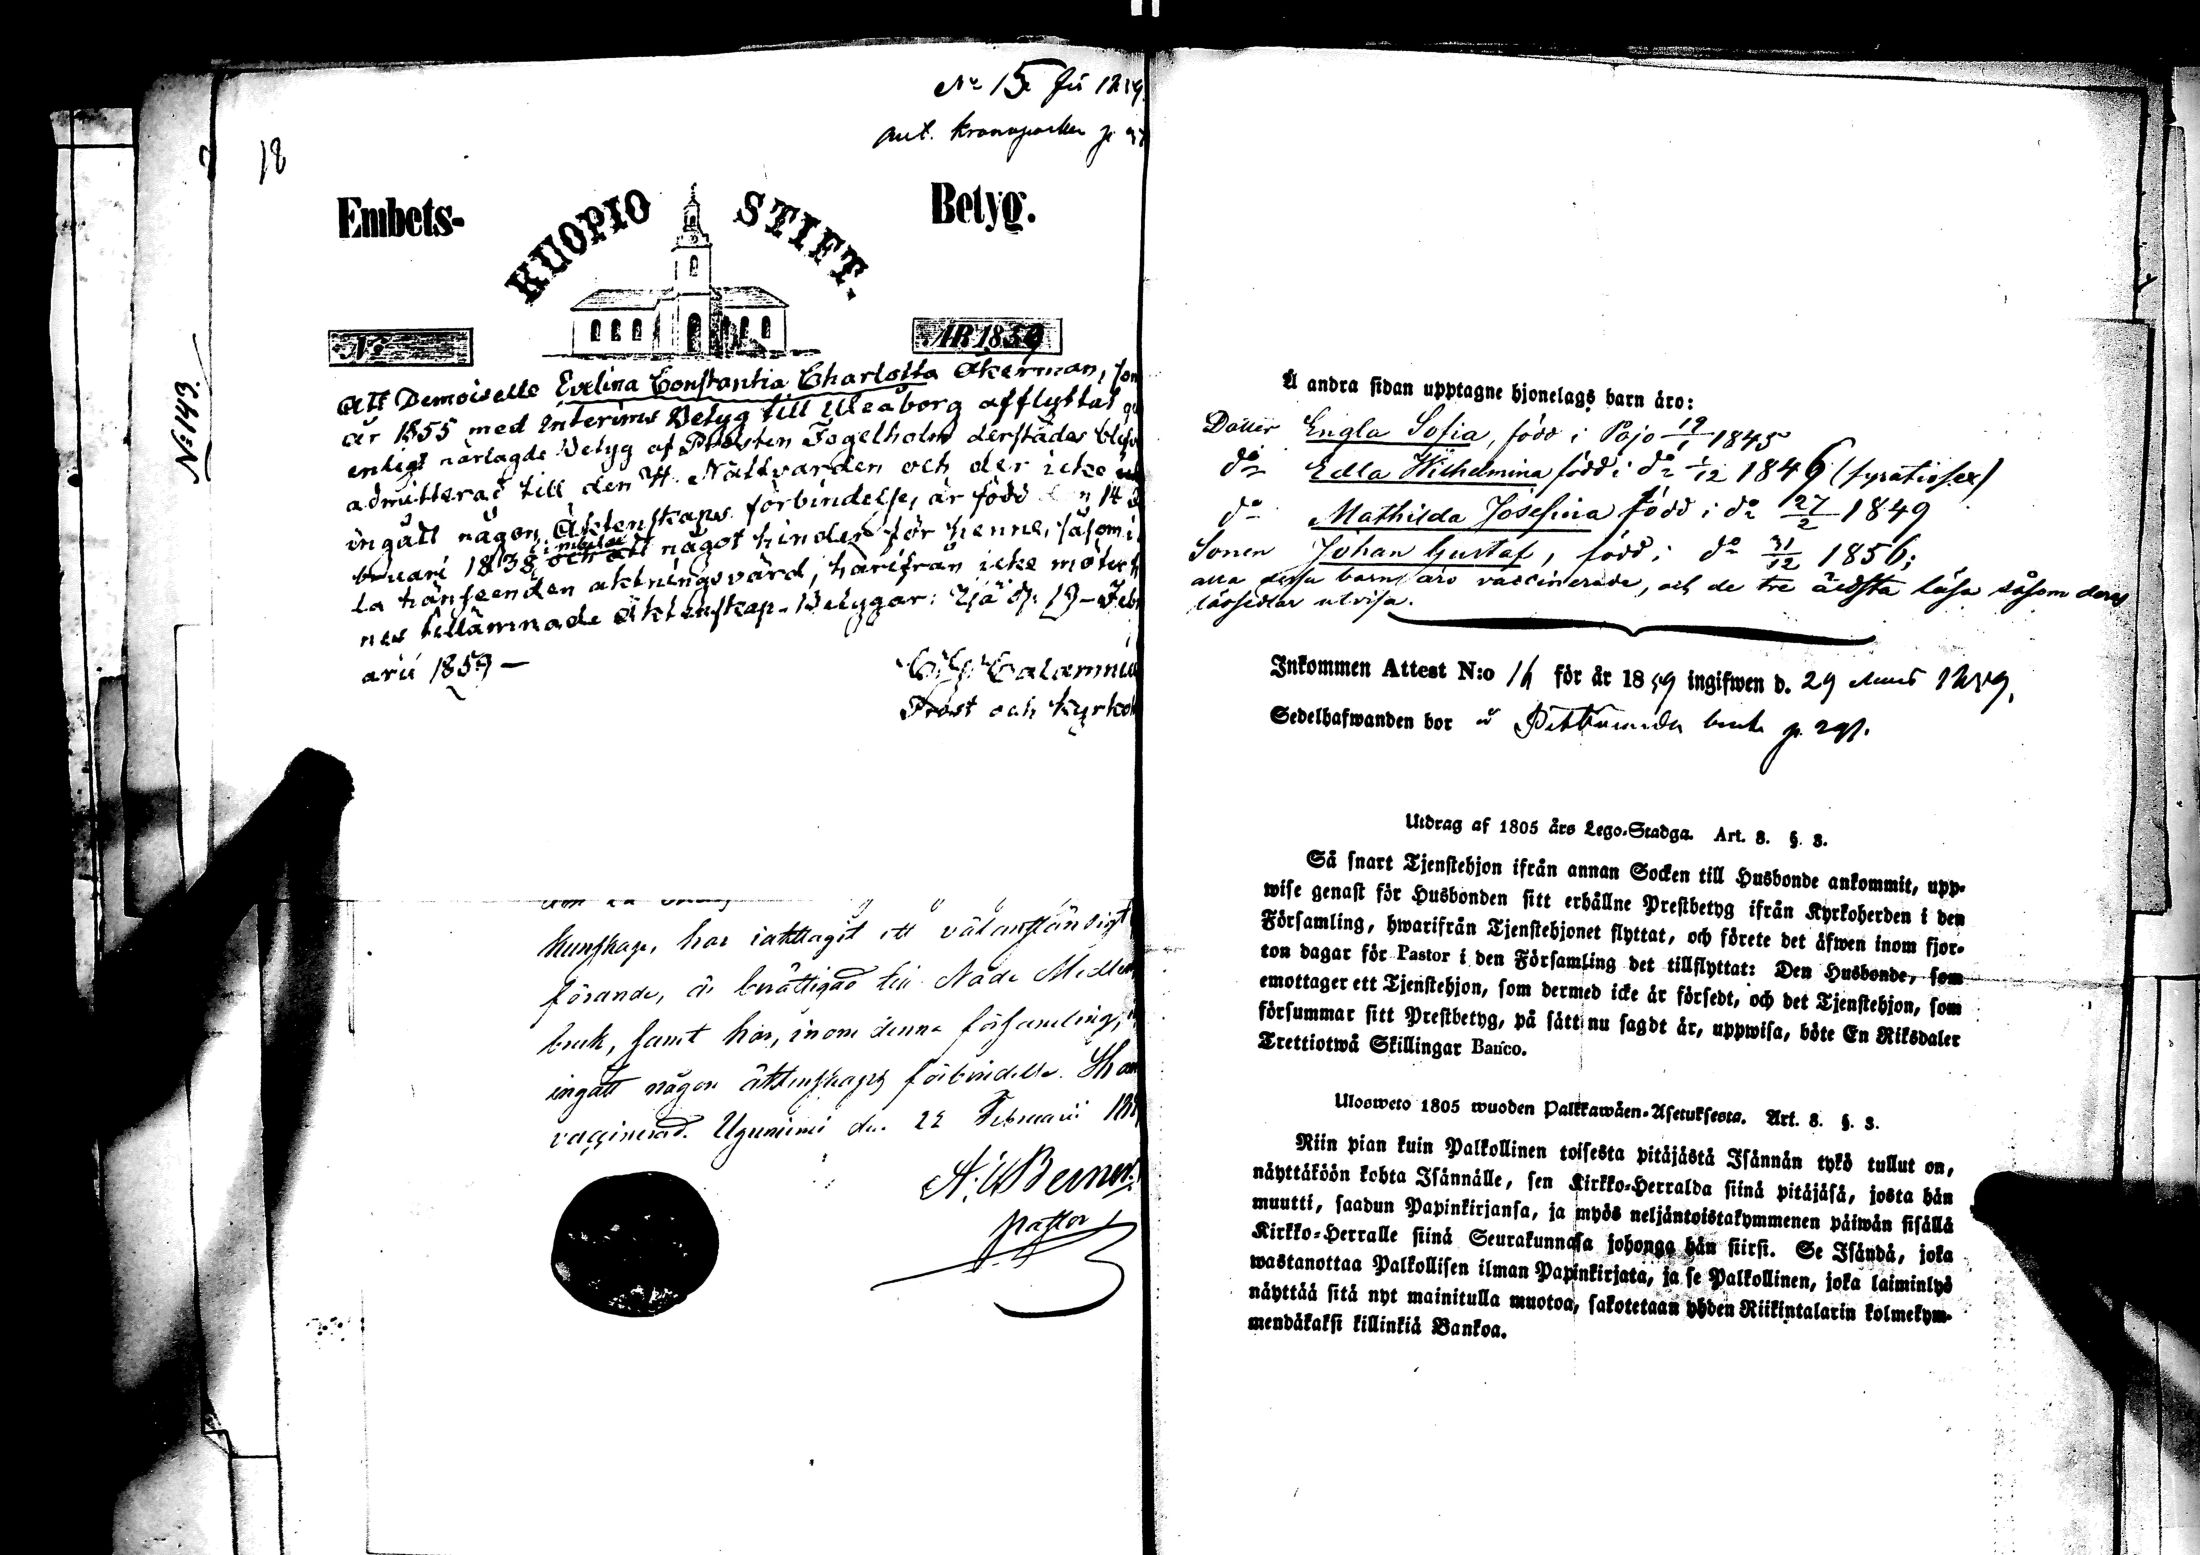 No 15 för 1859
ant. Kronoparken p
18
Embets- KUOPIO STIFT. Betyg.
No ÅR 1859
No 143.
Att Demoiselle Evelina Constantia Charlotta Åkerman, som
år 1855 med Interims Betyg till Uleåborg afflyttat
enligt närlagde Betyg af Prosten Fogelholm derstädes blifvit
admitterad till den H. Nattvarden och der icke
ingått någon Äktenskaps förbindelse, är född den 14
bruari 1838, och att något hinder för henne, såsom i
la hänseenden aktningsvärd, härifrån icke möter
nes tillämnade Äktenskap. Betygar: Ijå d. 19 Febr
arii 1859 —
Calamniu
Prost och Kyrko
kunskap, har iakttagit ett välanständigt
förande, är berättigad till Nåde Medlens
bruk, samt har, inom denna församling,
ingått någon äktenskaps förbindelse.
vaccinerad. Uguniemi den 22 Februarii
Pastor
Å andra sidan upptagne hjonelags barn äro:
Dotter Engla Sofia, född i Pojo 19/1 1845
do Edla Wilhelmina född i do 1/12 1846
do Mathilda Josefina född i do 27/2 1849
Sonen Johan Gustaf, född i do 31/12 1856;
alla dessa barn äro vaccinerade, och de tre äldsta läsa såsom deras
lässedlar utvisa.
Inkommen Attest N:o 16 för år 1859 ingifwen d. 29 Mars 1859.
Sedelhafwanden bor å bruk p. 291.
Utdrag af 1805 års Lego-Stadga. Art. 8. §. 3.
Så snart Tjenstehjon ifrån annan Socken till Husbonde ankommit, upp-
wise genast för Husbonden sitt erhållne Prestbetyg ifrån Kyrkoherden i den
Församling, hwarifrån Tjenstehjonet flyttat, och förete det äfwen inom fjor-
ton dagar för Pastor i den Församling det tillflyttat: Den Husbonde, som
emottager ett Tjenstehjon, som dermed icke är försedt, och det Tjenstehjon, som
försummar sitt Prestbetyg, på sätt nu sagdt är, uppwisa, böte En Riksdaler
Trettiotwå Skillingar Banco.
Ulosweto 1805 wuoden Palkkawäen-Asetuksesta. Art. 8. §. 3.
Niin pian kuin Palkollinen toisesta pitäjästä Isännän tykö tullut on,
näyttäköön kohta Isännälle, sen Kirkko-Herralda siinä pitäjäsä, josta hän
muutti, saadun Papinkirjansa, ja myös neljäntoistakymmenen päiwän sisällä
Kirkko-Herralle siinä Seurakunnasa johonga hän siirsi. Se Isändä, joka
wastanottaa Palkollisen ilman Papinkirjata, ja se Palkollinen, joka laiminlyö
näyttää sitä nyt mainitulla muotoa, sakotetaan yhden Riikintalarin kolmekym-
mendäkaksi killinkiä Bankoa.